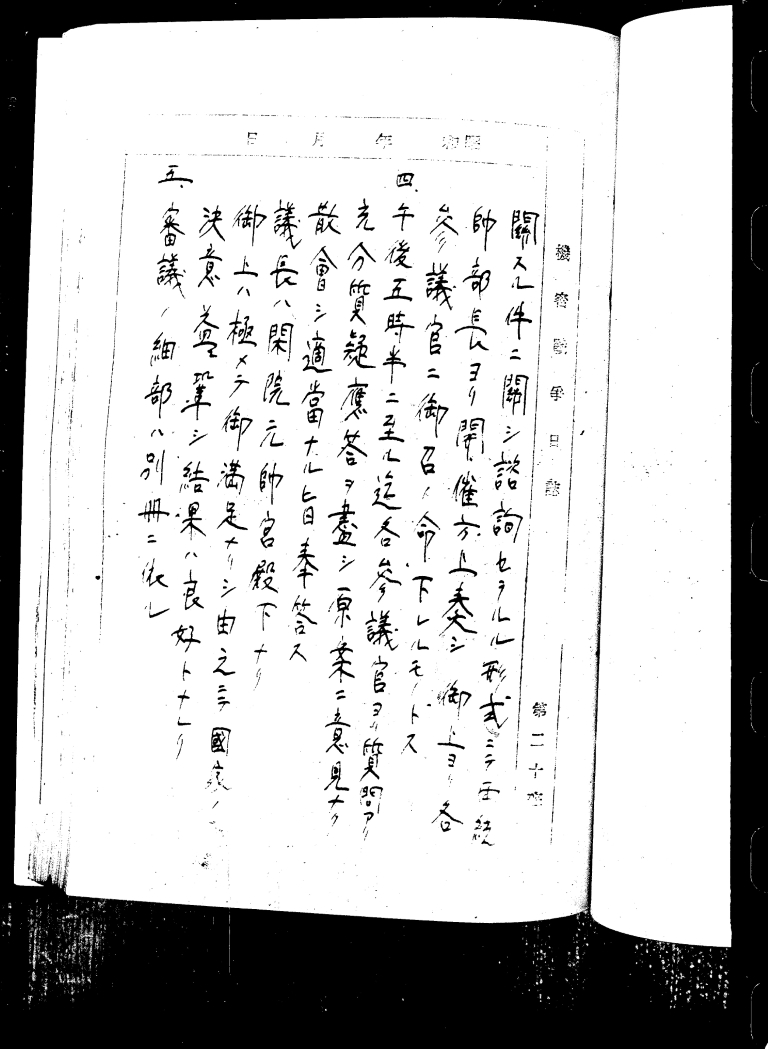 機密戰爭日誌
第二十
昭和 年 月 日
關スル件ニ關シ諮詢セラルル形式ニテ両統
帥部長ヨリ開催方上奏シ御上ヨリ各
參議官ニ御召ノ命下レルモノトス
四、午後五時半ニ至ル迄各參議官ヨリ質問アリ
充分質疑應答ヲ盡シ原案ニ意見ナク
散會シ適當ナル旨奉答ス
議長ハ閑院元帥宮殿下ナリ
御上ハ極メテ御滿足ナリシ由之ニテ國家ノ
決意益々鞏シ結果ハ良好トナレリ
五、審議ノ細部ハ別冊ニ依ル